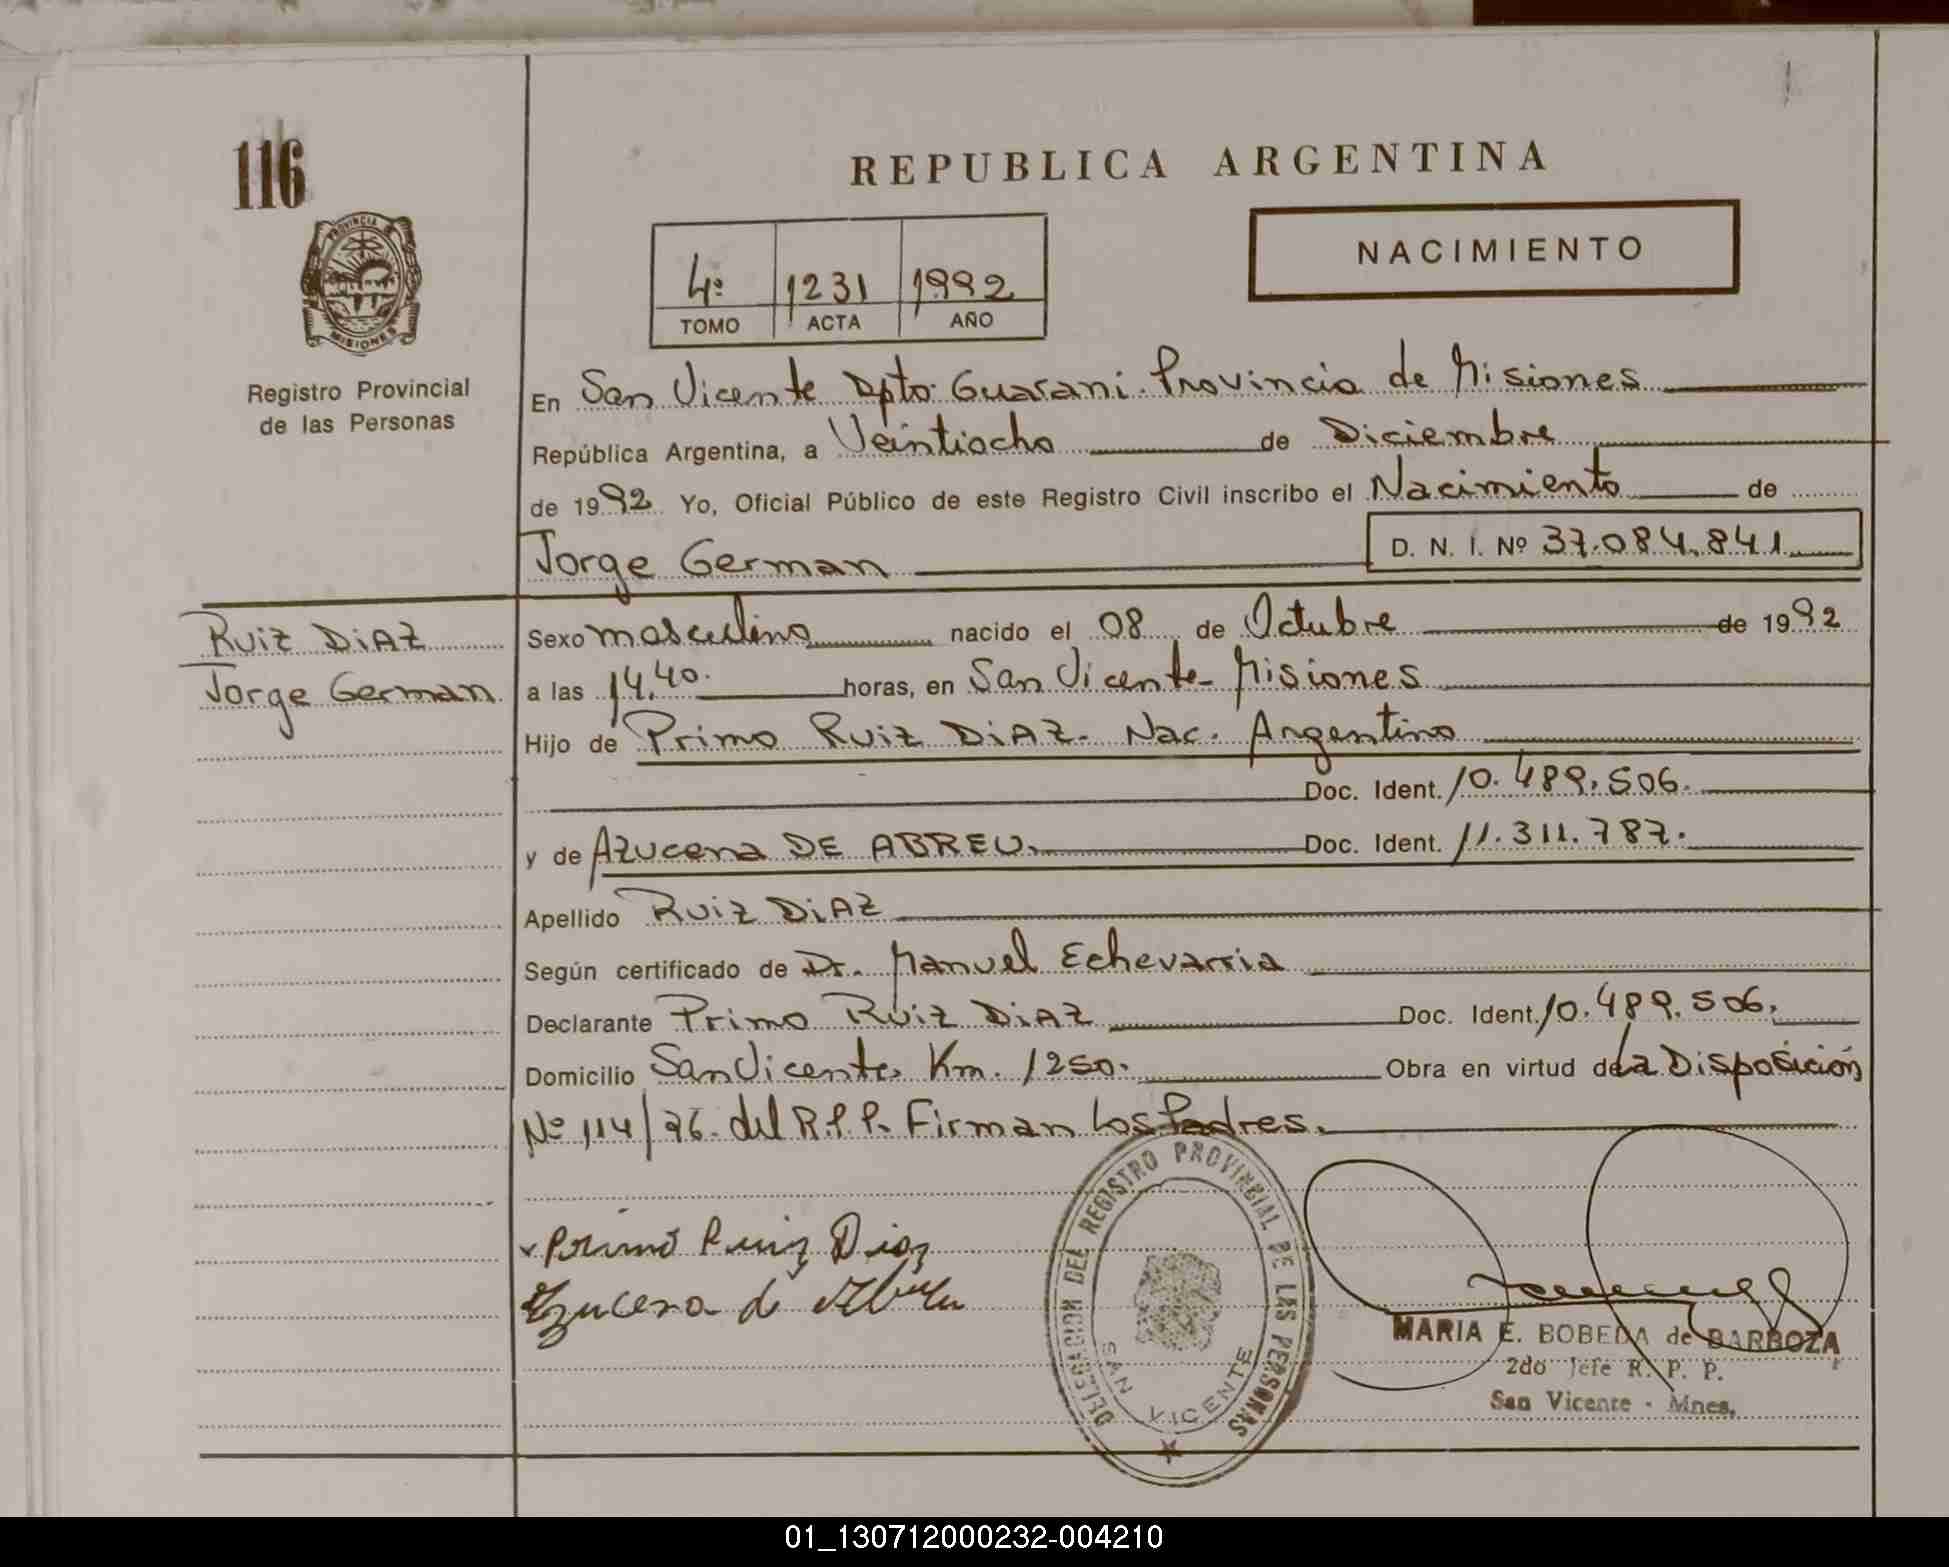 116
PROVINCIA DE
MISIONES
Registro Provincial
de las Personas
REPUBLICA ARGENTINA
NACIMIENTO
4º 1231 1992
TOMO ACTA AÑO
En San Vicente Dpto. Guarani. Provincia de Misiones
República Argentina, a Veintiocho de Diciembre
de 1992 Yo, Oficial Público de este Registro Civil inscribo el Nacimiento de
Jorge German D. N. I. Nº 37.084.841
RUiZ DiAZ
Jorge German
Sexo masculino nacido el 08 de Octubre de 1992
a las 14,40. horas, en San Vicente - Misiones
Hijo de Primo RUiZ DiAZ. Nac. Argentino
Doc. Ident. 10.489.506.
y de Azucena DE ABREU. Doc. Ident. 11.311.787.
Apellido RUiZ DiAZ
Según certificado de Dr. Manuel Echevarria
Declarante Primo RUiZ DiAZ Doc. Ident. 10.489.506.
Domicilio San Vicente, Km. 1250. Obra en virtud de La Disposición
Nº 114/76. del R.P.P. Firman Los Padres.
Primo Ruiz Diaz
Azucena de Abreu
DELEGACION DEL REGISTRO PROVINCIAL DE LAS PERSONAS
SAN VICENTE
MARIA E. BOBEDA de BARBOZA
2do Jefe R. P. P.
San Vicente - Mnes.
01_130712000232-004210